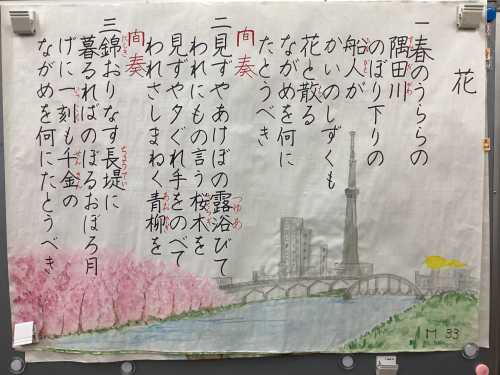 花
一 春のうららの
隅田川
のぼり下りの
船人が
かいのしずくも
花と散る
ながめを何に
たとうべき
間奏
二 見ずやあけぼの露浴びて
われにもの言う桜木を
見ずや夕ぐれ手をのべて
われさしまねく青柳を
間奏
三 錦おりなす長堤に
暮るればのぼるおぼろ月
げに一刻も千金の
ながめを何にたとうべき
M 33